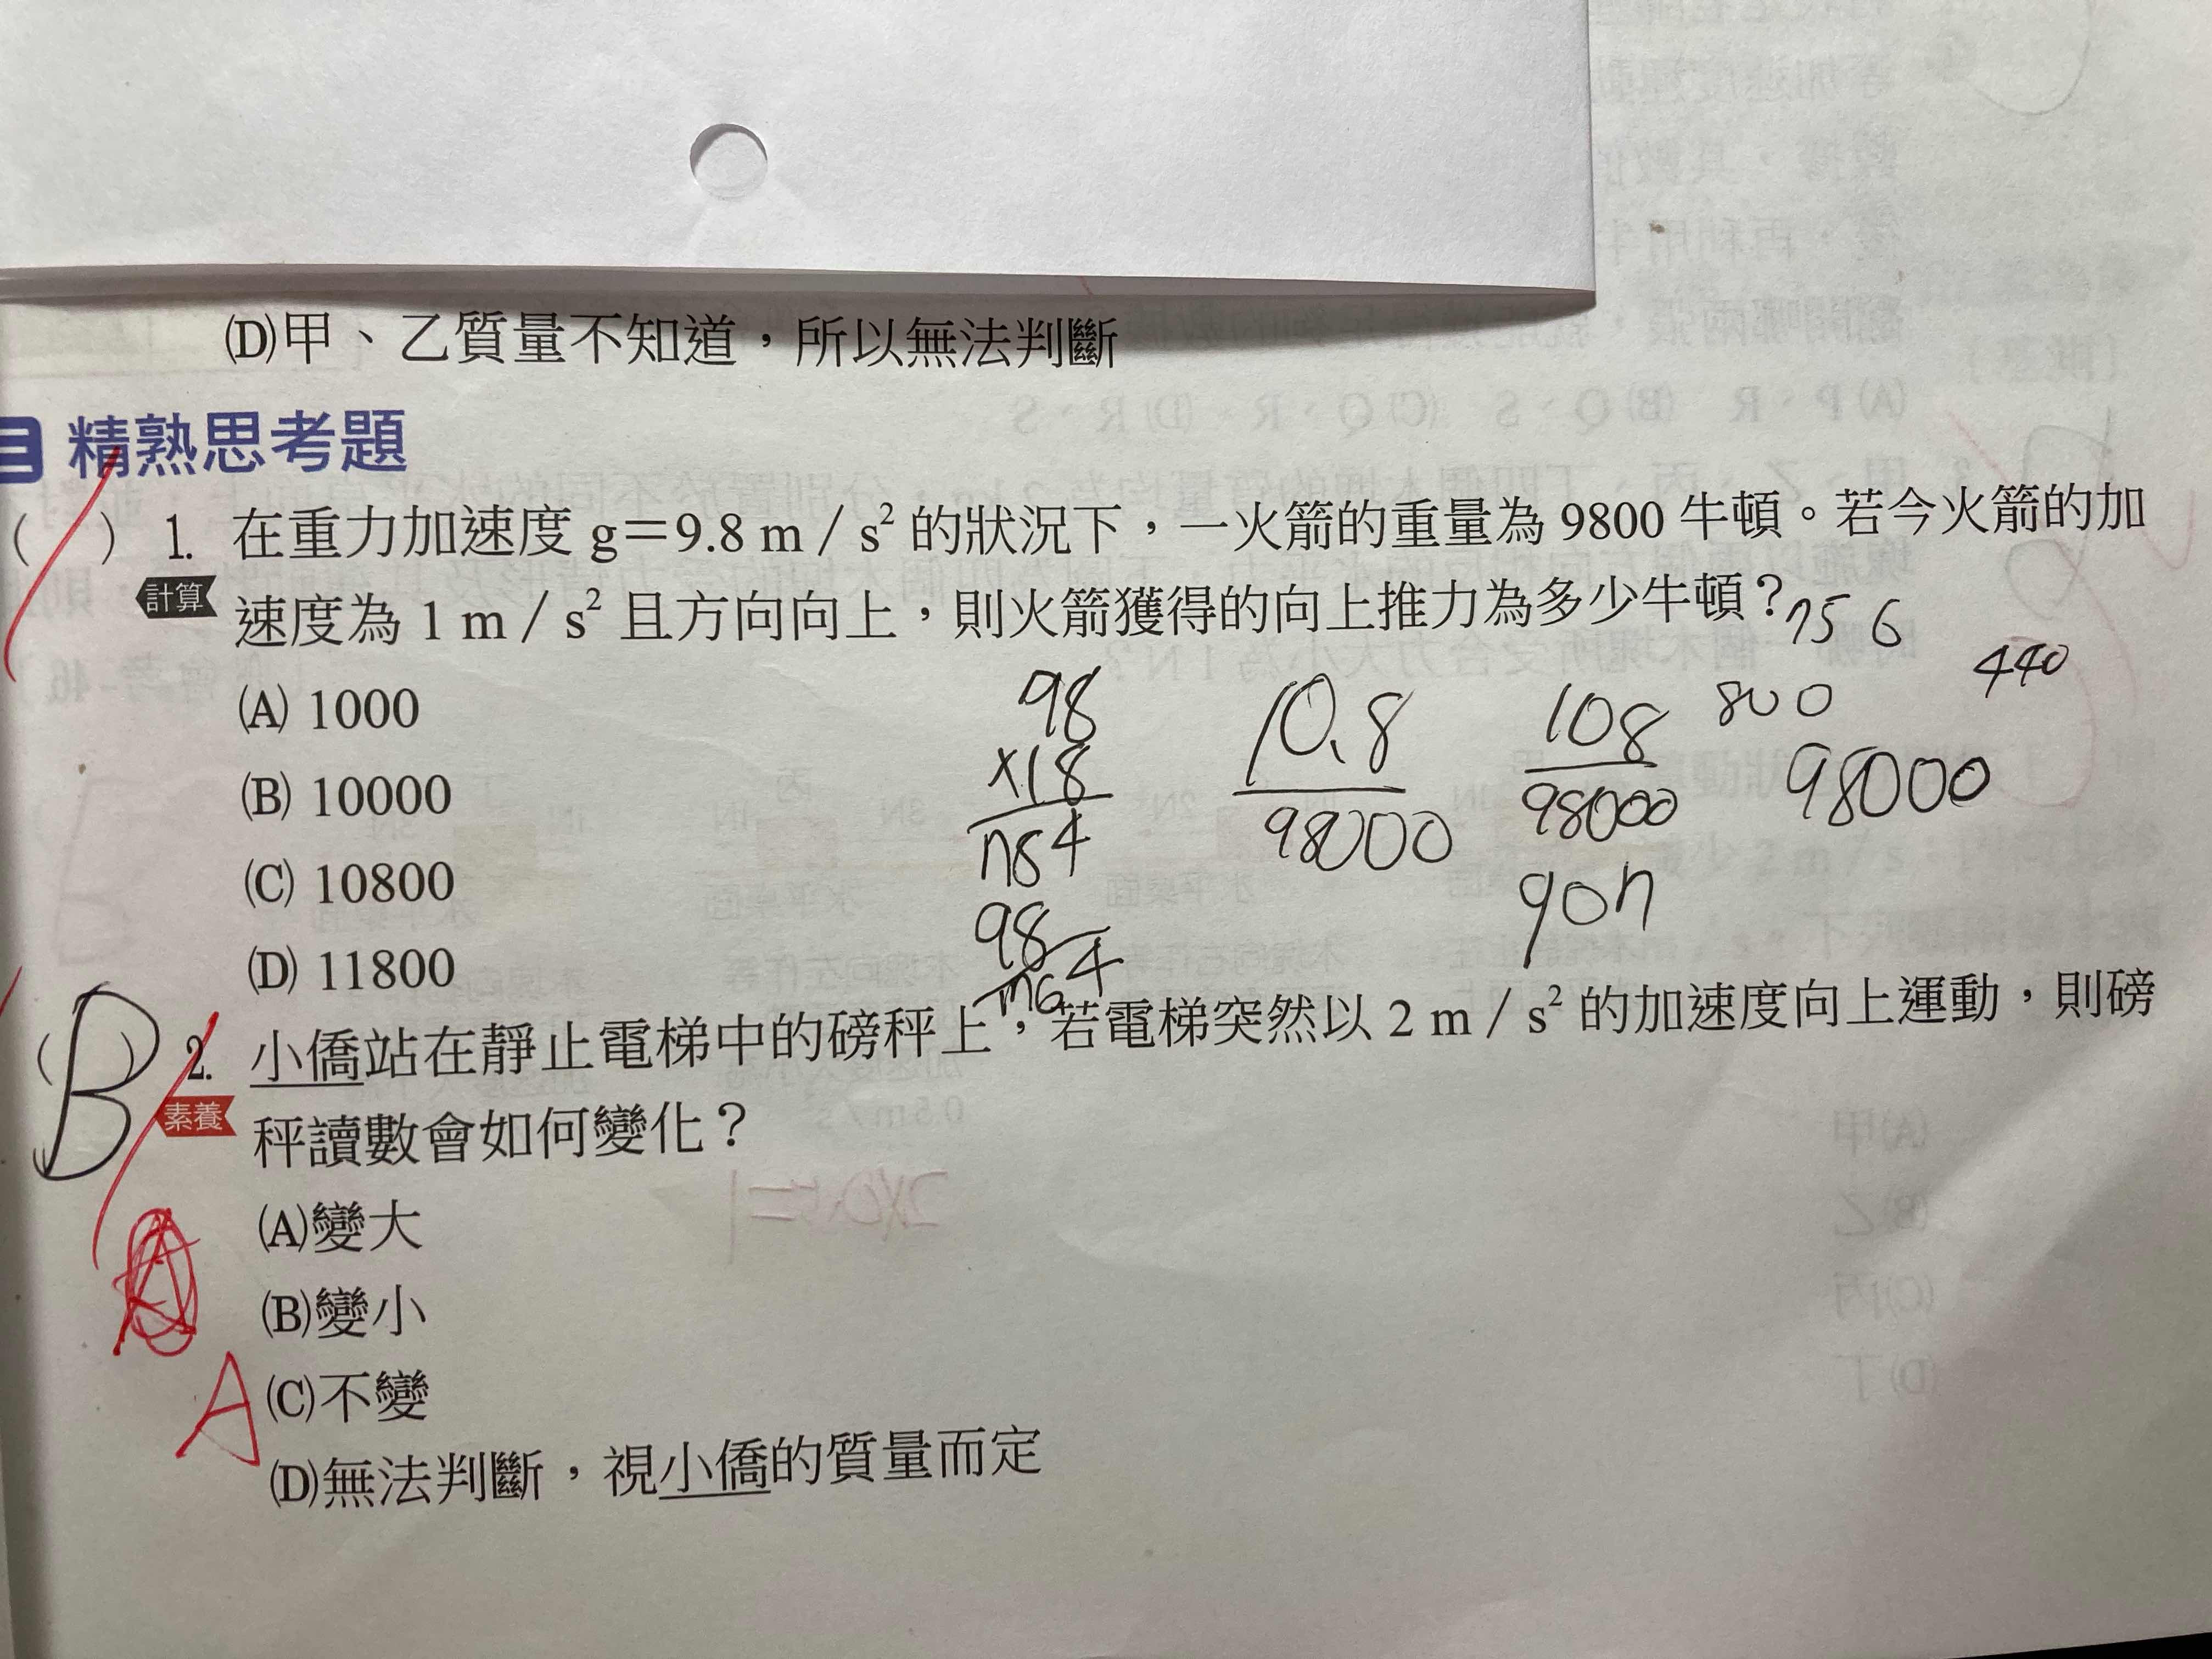 (D)甲、乙質量不知道，所以無法判斷
三 精熟思考題
(　) 1. 在重力加速度 g＝9.8 m／s² 的狀況下，一火箭的重量為 9800 牛頓。若今火箭的加
計算 速度為 1 m／s² 且方向向上，則火箭獲得的向上推力為多少牛頓？
(A) 1000
(B) 10000
(C) 10800
(D) 11800
98
×18
98
10.8
98000
108
98000
800
98000
440
(B) 2. 小僑站在靜止電梯中的磅秤上，若電梯突然以 2 m／s² 的加速度向上運動，則磅
素養 秤讀數會如何變化？
(A)變大
(B)變小
A
(C)不變
(D)無法判斷，視小僑的質量而定